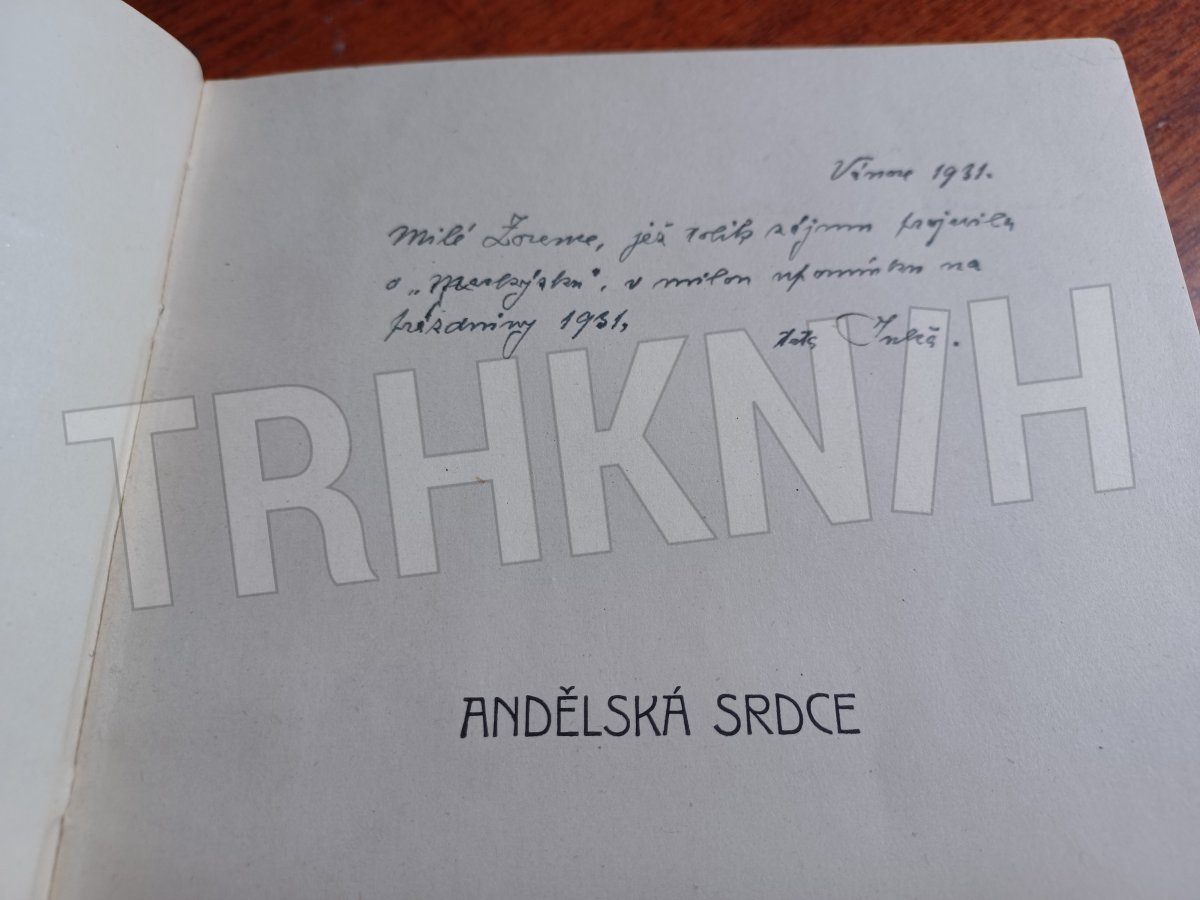 Vánoce 1931.
Milé Zorence, jež tolik zájmu projevila
o „ ", v milou upomínku na
prázdniny 1931,
TRHKNIH
ANDĚLSKÁ SRDCE